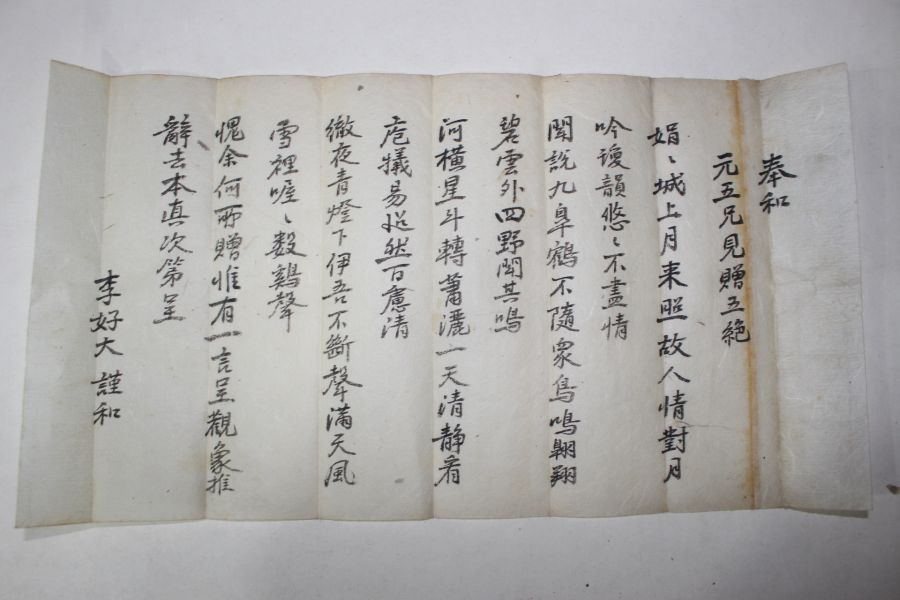 奉和
元五兄見贈五絶
娟〻城上月来照故人情對月
吟瓊韻悠〻不盡情
聞説九皐鶴不隨衆鳥鳴翺翔
碧雲外四野聞其鳴
河橫星斗轉蕭灑一天清靜看
庖犧易炤然百慮清
徹夜青燈下伊吾不斷聲滿天風
雪裡喔〻数鷄聲
愧余何所贈惟有一言呈觀象推
辭去本真次第呈
李好大謹和